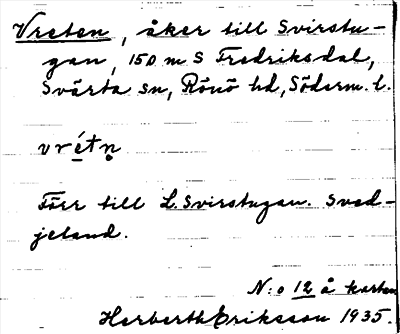 Vreten, åker till Svirstu-
gan, 150 m S Fredriksdal,
Svärta sn, Rönö hd, Söderm. l.
vrétn̥
Förr till L. Svirstugan. Sved-
jeland.
N:o 12 å kartan
Herberth Eriksson 1935.